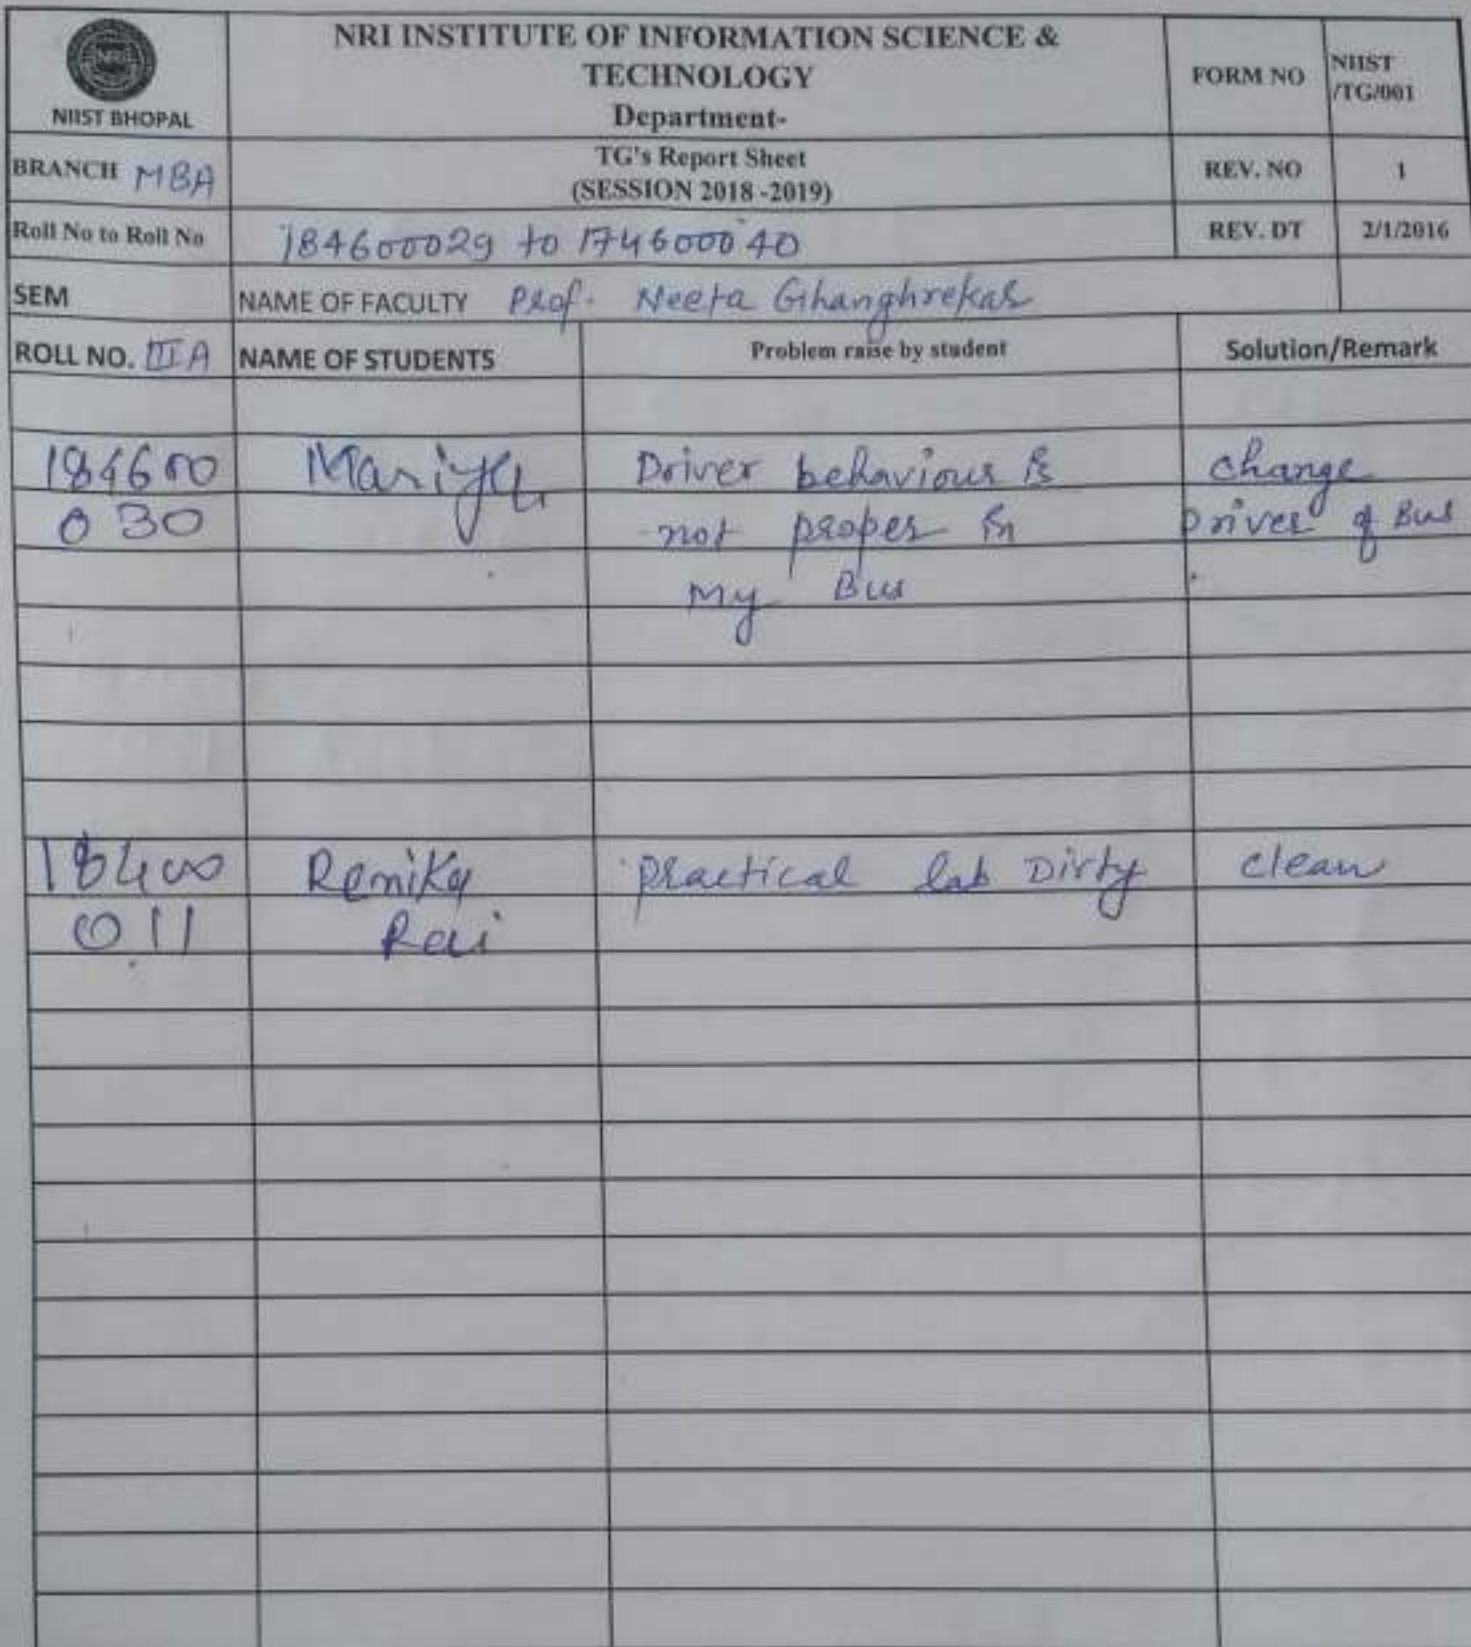 NRI INSTITUTE OF INFORMATION SCIENCE &
TECHNOLOGY
Department-
NIIST BHOPAL
FORM NO
NIIST
/TG/001
BRANCH MBA
TG's Report Sheet
(SESSION 2018 -2019)
REV. NO
1
Roll No to Roll No
184600029 to 174600040
REV. DT
2/1/2016
SEM
NAME OF FACULTY Prof. Neeta Ghanghrekar
ROLL NO. III A
NAME OF STUDENTS
Problem raise by student
Solution/Remark
184600
Mariya
Driver behaviour is
change
030
not proper in
Driver of Bus
My Bus
18400
Remika
practical lab Dirty
clean
011
Rai